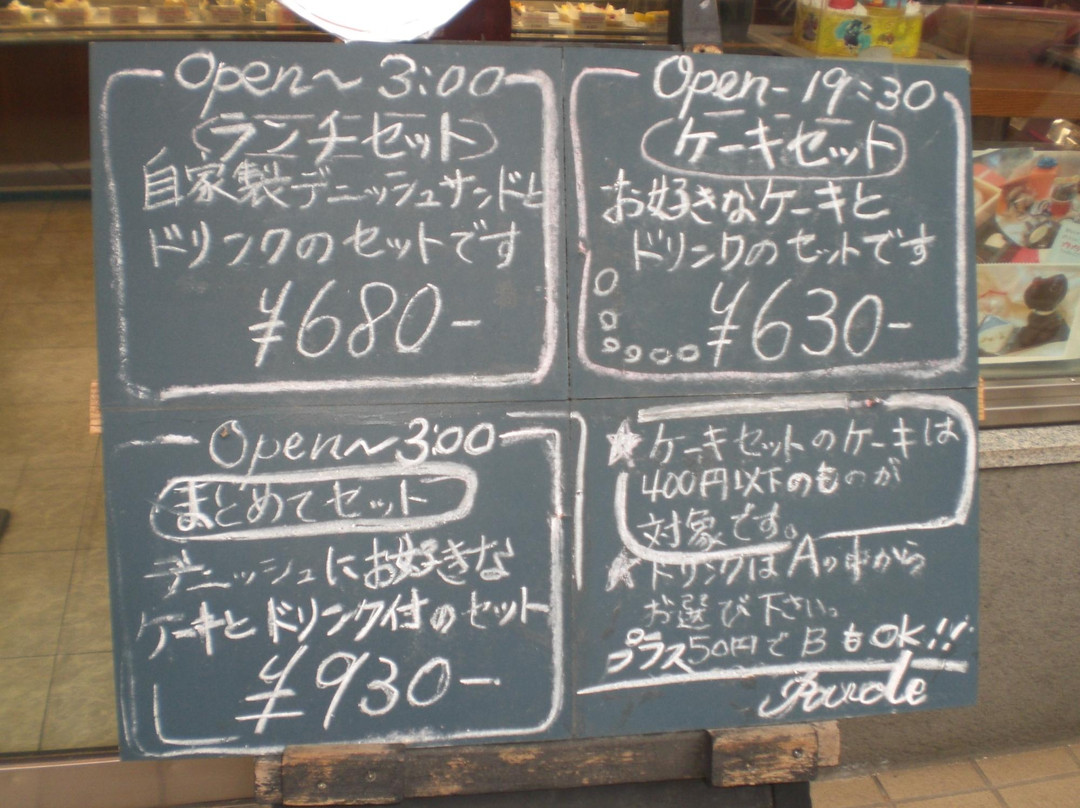 Open～3:00
ランチセット
自家製デニッシュサンドと
ドリンクのセットです
¥680-
Open-19:30
ケーキセット
お好きなケーキと
ドリンクのセットです
¥630-
Open～3:00
まとめてセット
デニッシュにお好きな
ケーキとドリンク付のセット
¥930-
★ケーキセットのケーキは
400円以下のものが
対象です。
★ドリンクはAの中から
お選び下さい。
プラス50円でBもOK!!